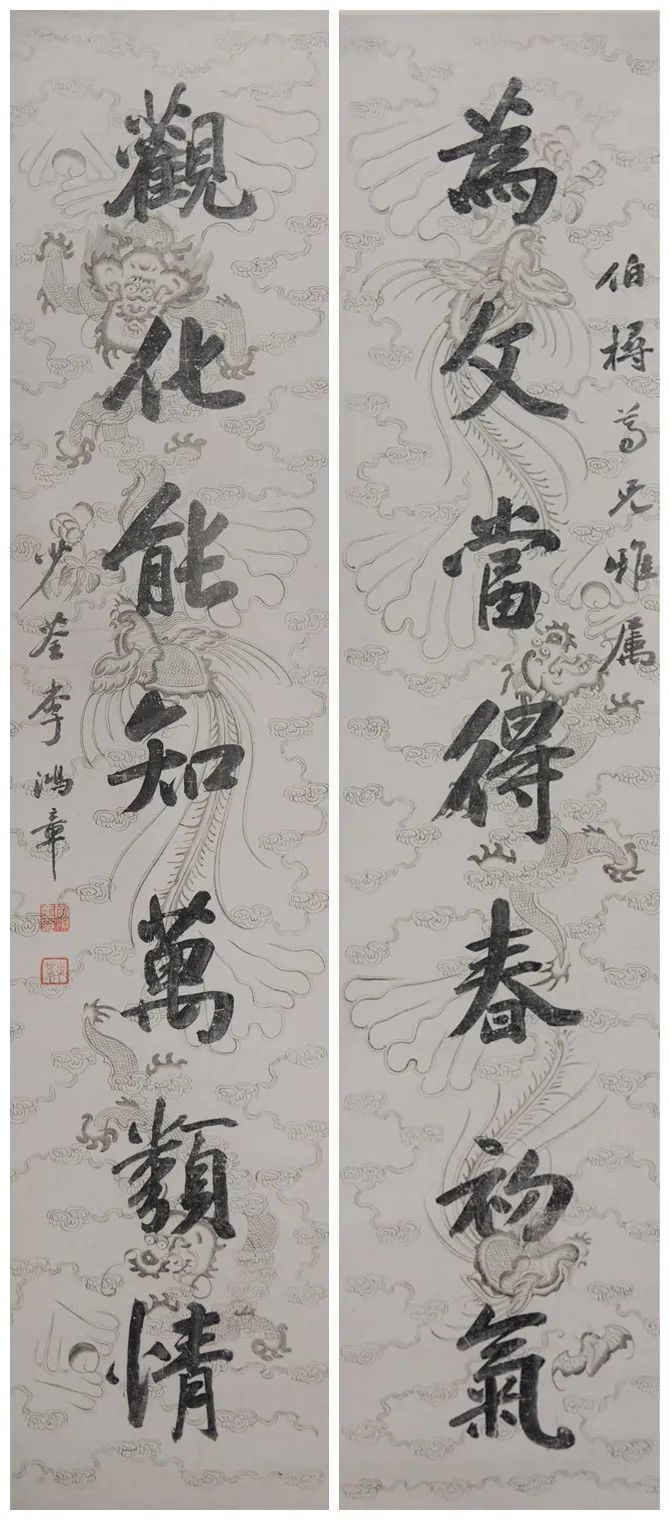 伯樽尊兄雅属
為文當得春初氣
觀化能知萬類情
少荃李鴻章